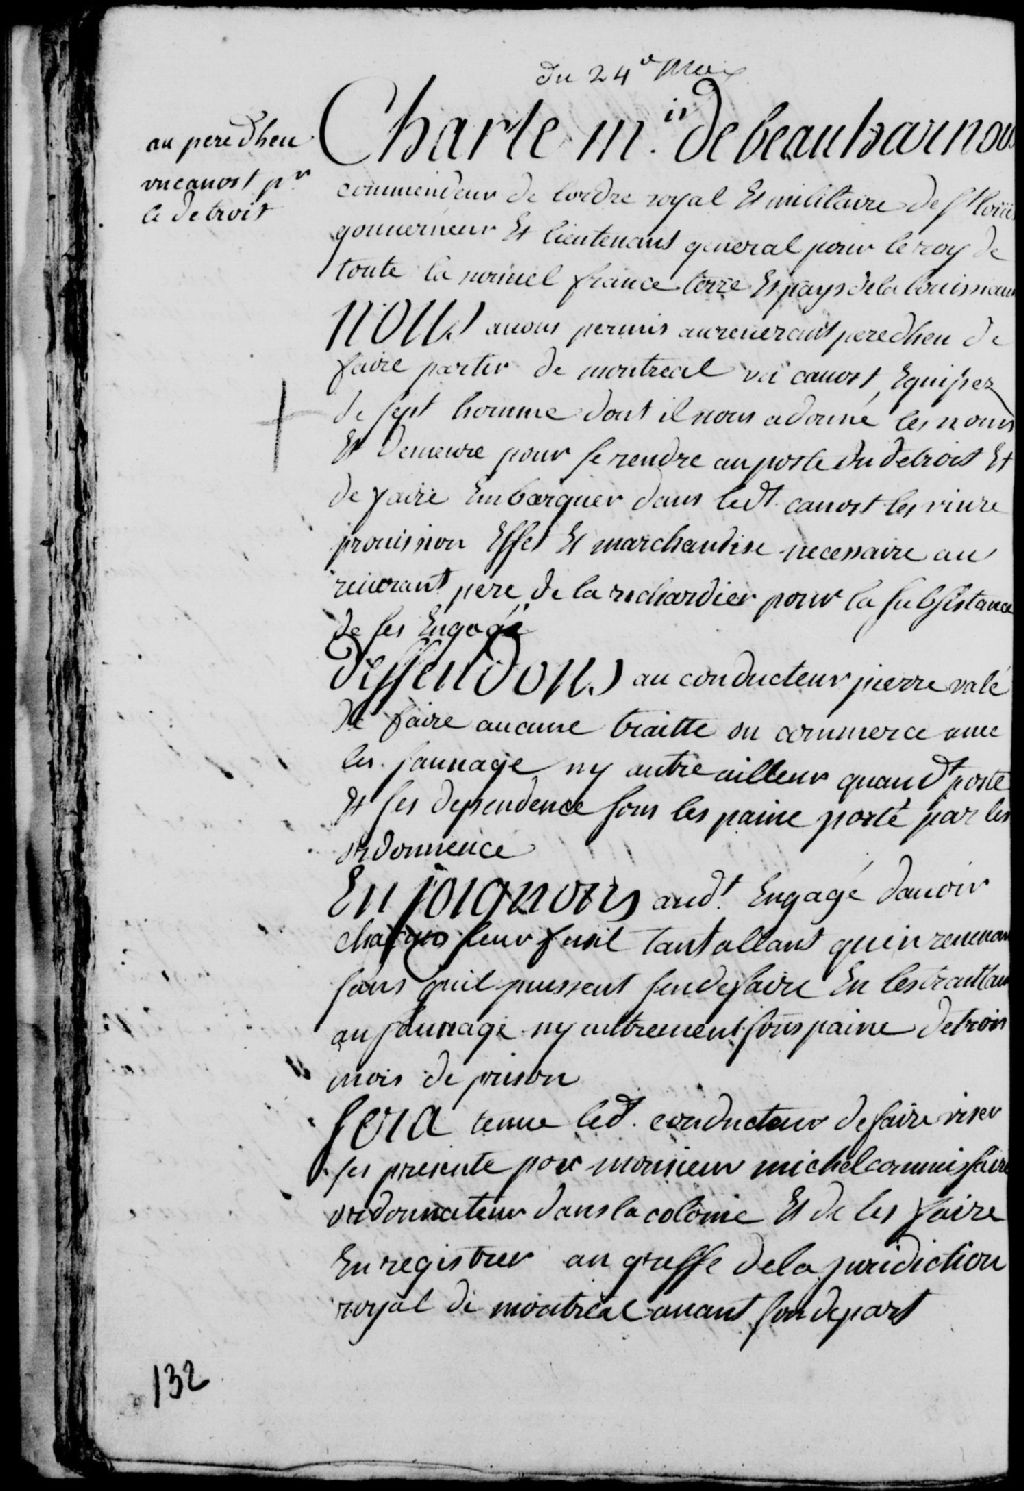 du 24e May
au pere dheu
un canost pr
le detroit
Charle m.is de beauharnous
commendeur de lordre royal Et militaire de St loüis
gouuerneur Et lieutenant general pour le roy de
toute la nouuel france terre Et pays de la louisianne
Nous auons permis au reuerant pere dheu de
faire partir de montreal un canost Equipez
de sept homme dont il nous a donné les noms
Et Demeure pour se rendre au poste du detroit Et
de faire Embarquer dans ledt. canost les viure
prouision Effet Et marchandise necessaire au
reuerant pere de la richardier pour la subsistance
de ses Engagé
deffendons au conducteur pierre valé
de faire aucune traitte ou commerce auec
les sauuage ny autre ailleur quaudt poste
Et ses dependence sous les paine porté par les
ordonnence
Enjoignons audt. Engagé dauoir
chaqun leur fusil tant allant quen reuenant
sans quil puissent sen defaire En les traittant
au sauuage ny autrement sous paine de trois
mois de prison
sera tenue ledt. conducteur de faire viser
ses presente par monsieur michel commissaire
ordonnateur dans la colonie Et de les faire
Enregistrer au greffe de la juridiction
royal de montreal auant son depart
132